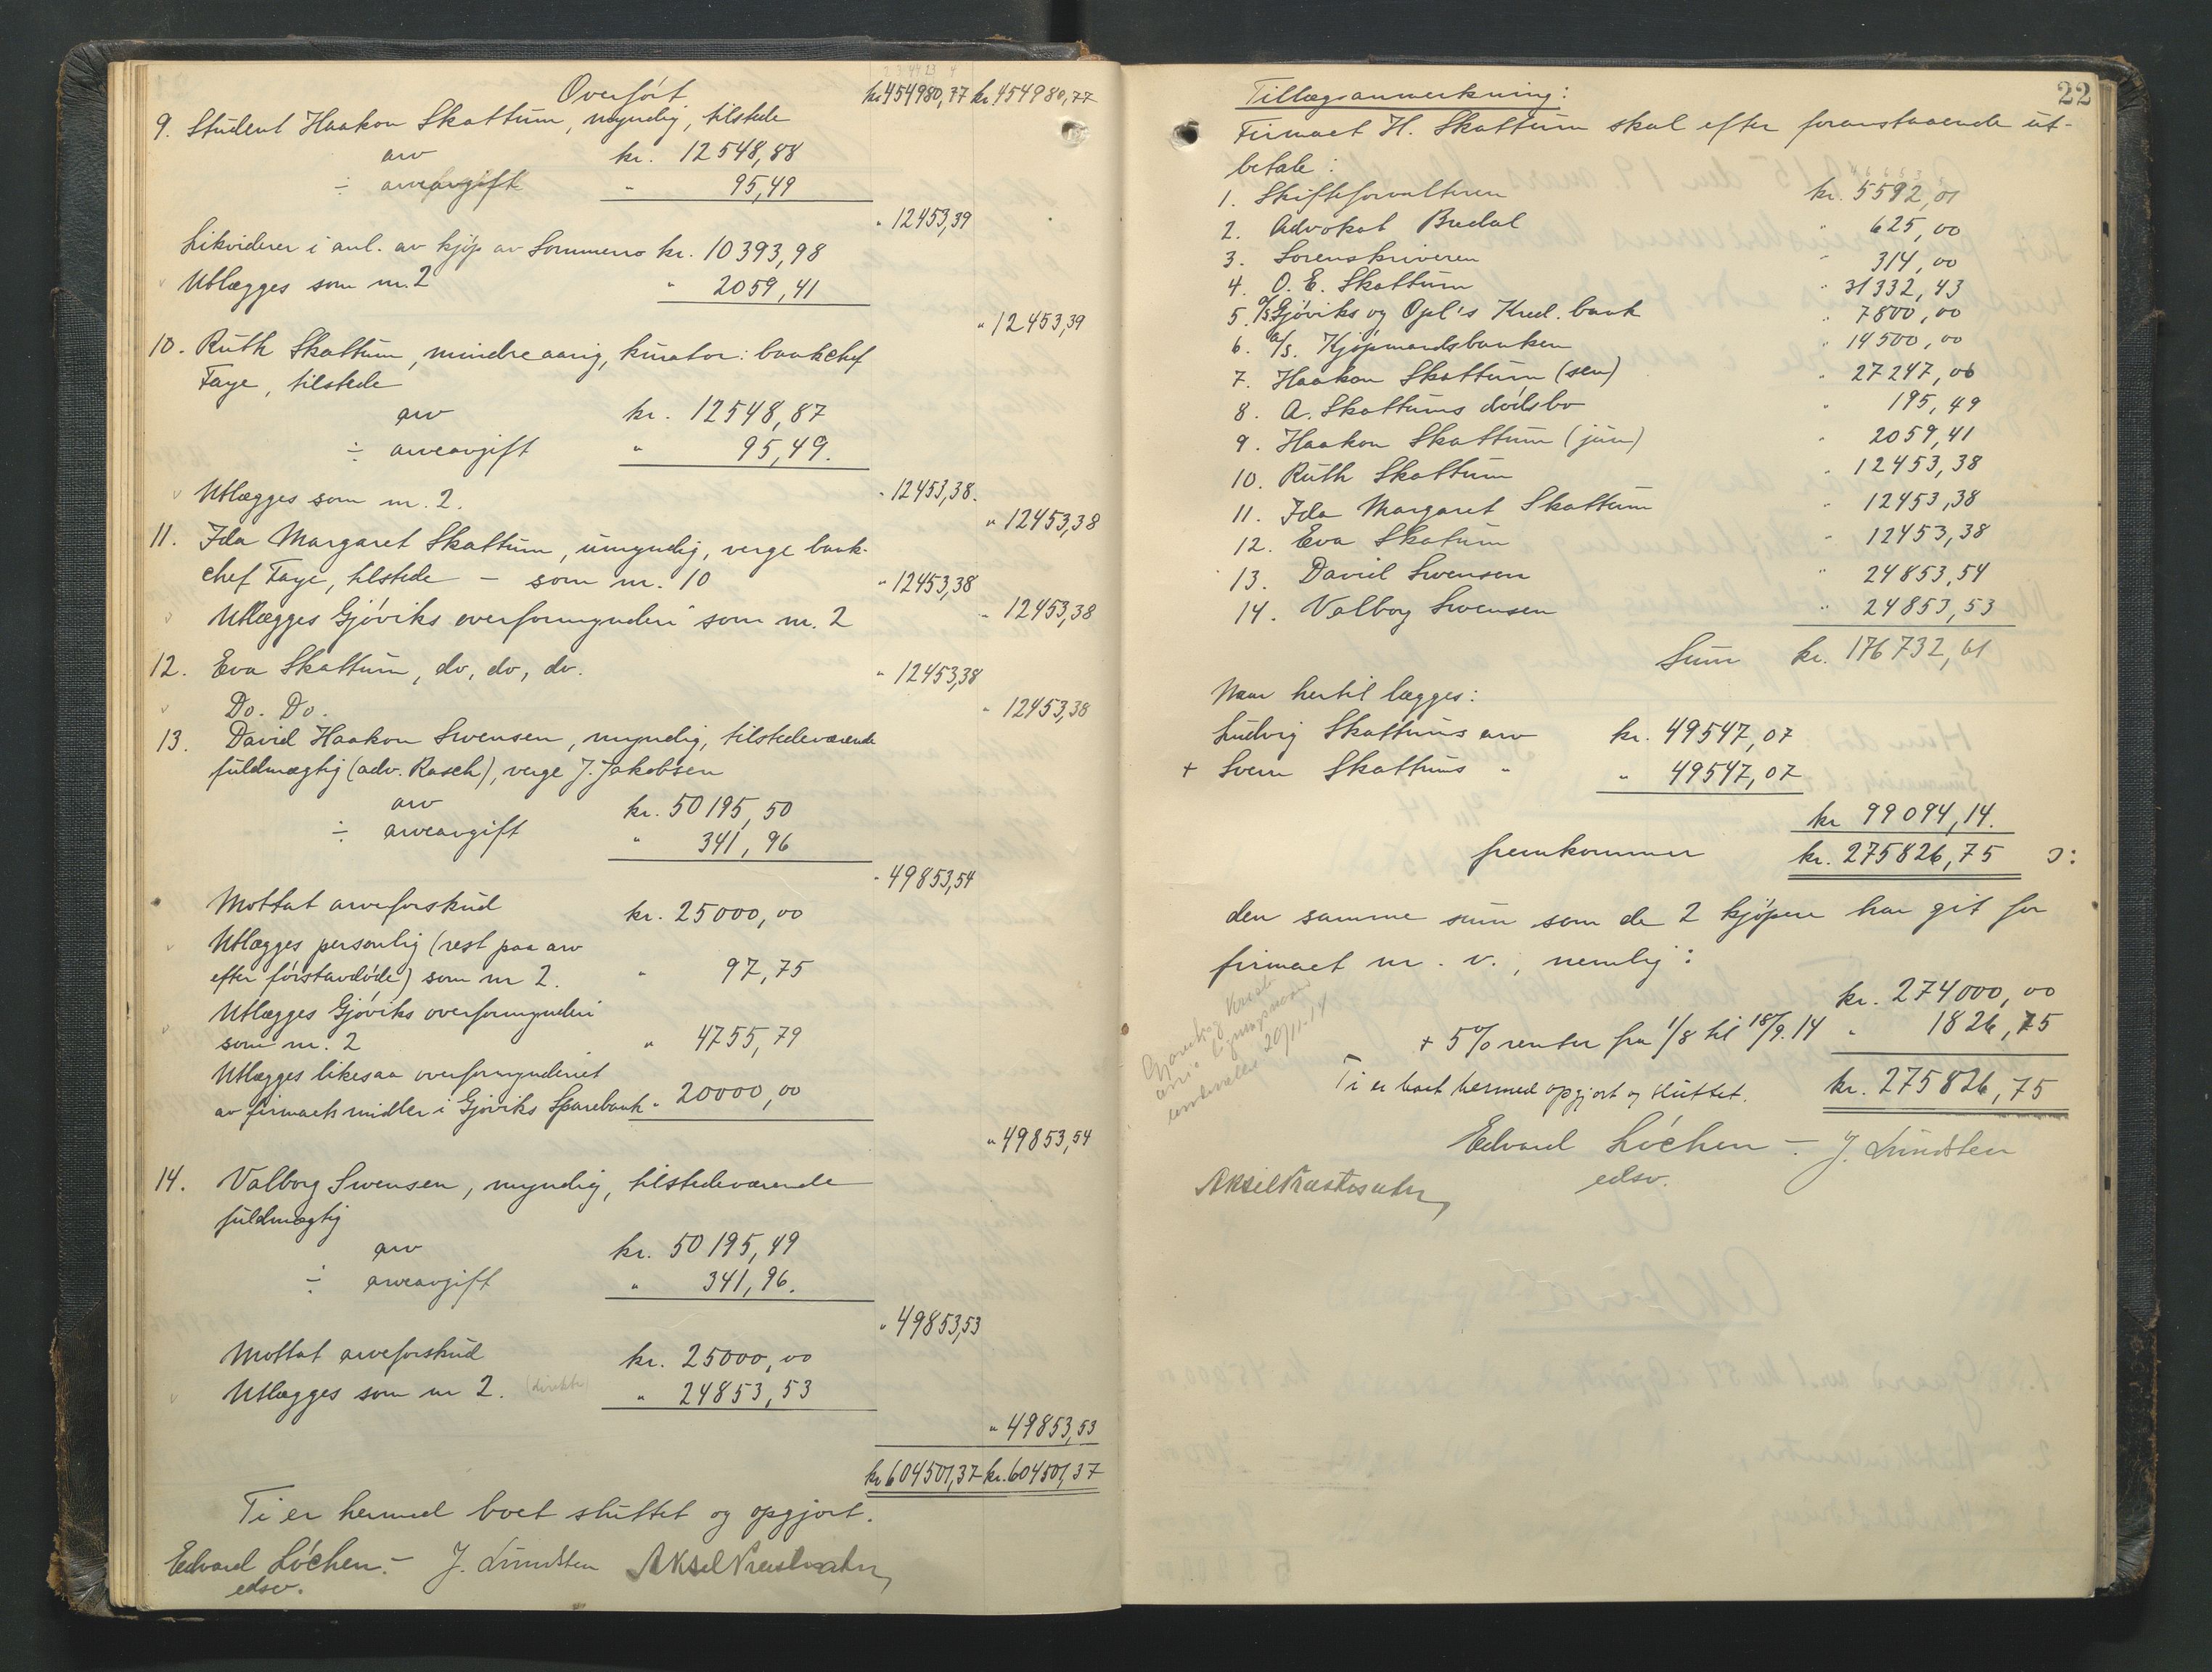 Overført kr 454980,77 kr. 454980,77
9. Student Haakon Skattum, myndig, tilstede
arv kr. 12548,88
÷ arveavgift " 95,49
" 12453,39
Likviderer i anl. av kjøp av Sommerro kr. 10393,98
Utlægges som nr. 2 " 2059,41
" 12453,39
10. Ruth Skattum, mindreaarig, kurator: bankchef
Faye, tilstede
arv kr. 12548,87
÷ arveavgift " 95,49.
" 12453,38.
Utlægges som nr. 2.
" 12453,38
11. Ida Margaret Skattum, umyndig, verge bank-
chef Faye, tilstede – som nr. 10 " 12453,38
Utlægges Gjøviks overformynderi som nr. 2 " 12453,38
12. Eva Skattum, do, do, do. " 12453,38
Do. Do. " 12453,38
13. David Haakon Swensen, myndig, tilstedeværende
fuldmægtig (adv. Rasch), verge J. Jakobsen
arv kr. 50195,50
÷ arveavgift " 341,96
" 49853,54
Mottat arveforskud kr. 25000,00
Utlægges personlig (rest paa arv
efter førstavdøde) som nr 2. " 97,75
Utlægges Gjøviks overformynderi
som nr. 2 " 4755,79
Utlægges likesaa overformynderiet
av firmaets midler i Gjøviks Sparebank " 20000,00
" 49853,54
14. Valborg Swensen, myndig, tilstedeværende
fuldmægtig
arv kr. 50195,49
÷ arveavgift " 341,96.
" 49853,53
Mottat arveforskud kr. 25000,00
Utlægges som nr 2. (direkte) " 24853,53
" 49853,53
kr 604501,37 kr. 604501,37
Ti er hermed boet sluttet og opgjort.
Edvard Løchen. – J. Lundsten Aksel Præstesæter
edsv.
22
Tillægsanmerkning:
Firmaet H. Skattum skal efter foranstaaende ut-
betale:
1. Skifteforvalteren kr. 5592,01
2. Advokat Bredal " 625,00
3. Sorenskriveren " 314,00
4. O. E. Skattum " 31332,43
5. A/S Gjøviks og Opl's Kred. bank " 7800,00
6. A/S. Kjøpmandsbanken " 14500,00
7. Haakon Skattum (sen) " 27247,06
8. A. Skattums dødsbo " 195,49
9. Haakon Skattum (jun) " 2059,41
10. Ruth Skattum " 12453,38
11. Ida Margaret Skattum " 12453,38
12. Eva Skattum " 12453,38
13. David Swensen " 24853,54
14. Valborg Swensen " 24853,53
Sum kr. 176732,61
Naar hertil lægges:
Ludvig Skattums arv kr. 49547,07
+ Svein Skattums " " 49547,07
kr 99094,14.
fremkommer kr. 275826,75 ɔ:
den samme sum som de 2 kjøpere har git for
firmaet m. v., nemlig:
kr. 274000,00
+ 5% renter fra 1/8 til 18/9.14 " 1826,75
Ti er boet hermed opgjort og sluttet. kr. 275826,75
20/11-14
Edvard Løchen – J. Lundsten
edsv.
Aksel Præstesæter